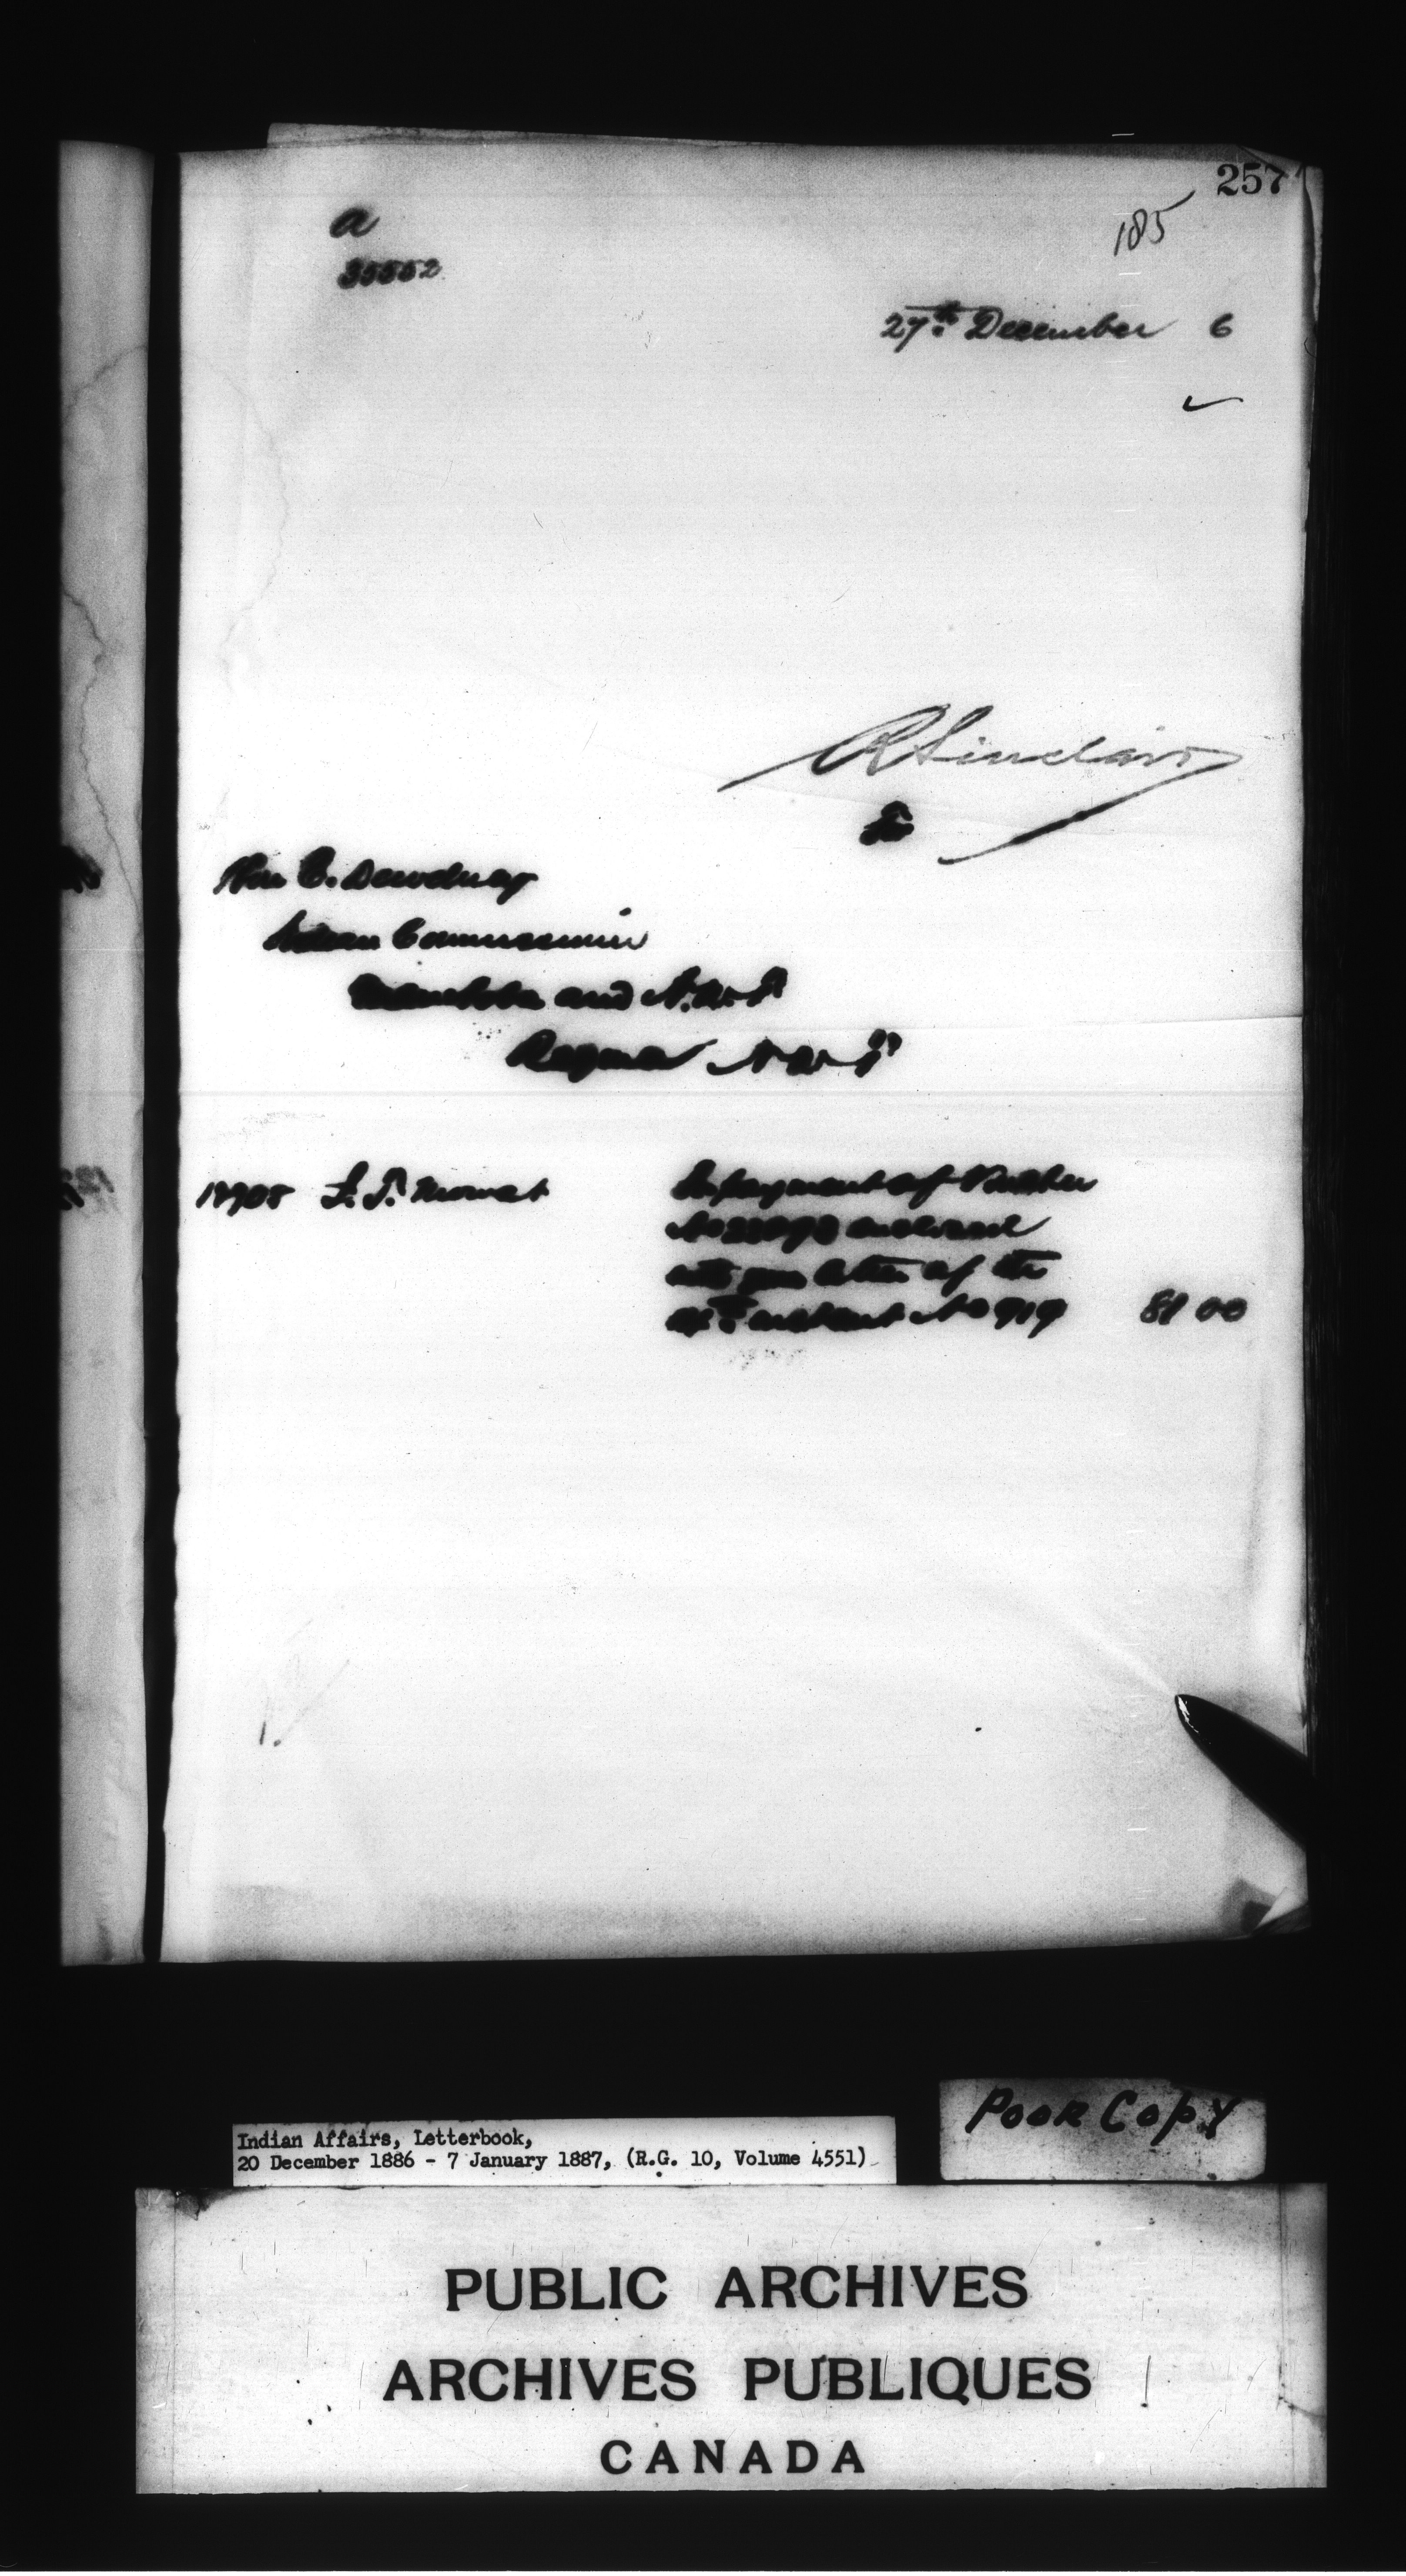 257
185
a
35552
27th December 6
R Sinclair
for
Hon E. Dewdney
Indian Commissioner
Manitoba and N.W.T
Regina N.W.T
J. T. Mowat
In payment of Voucher
No enclosed
with your letter of the
instant No 919 81 00
Poor Copy
Indian Affairs, Letterbook,
20 December 1886 - 7 January 1887, (R.G. 10, Volume 4551)
PUBLIC ARCHIVES
ARCHIVES PUBLIQUES
CANADA